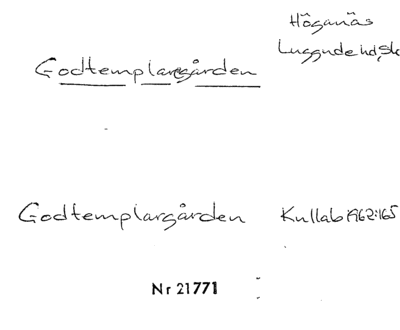 Höganäs
Luggude hd, Sk
Godtemplaregården
Godtemplargården Kullab 1962:165
Nr 21771